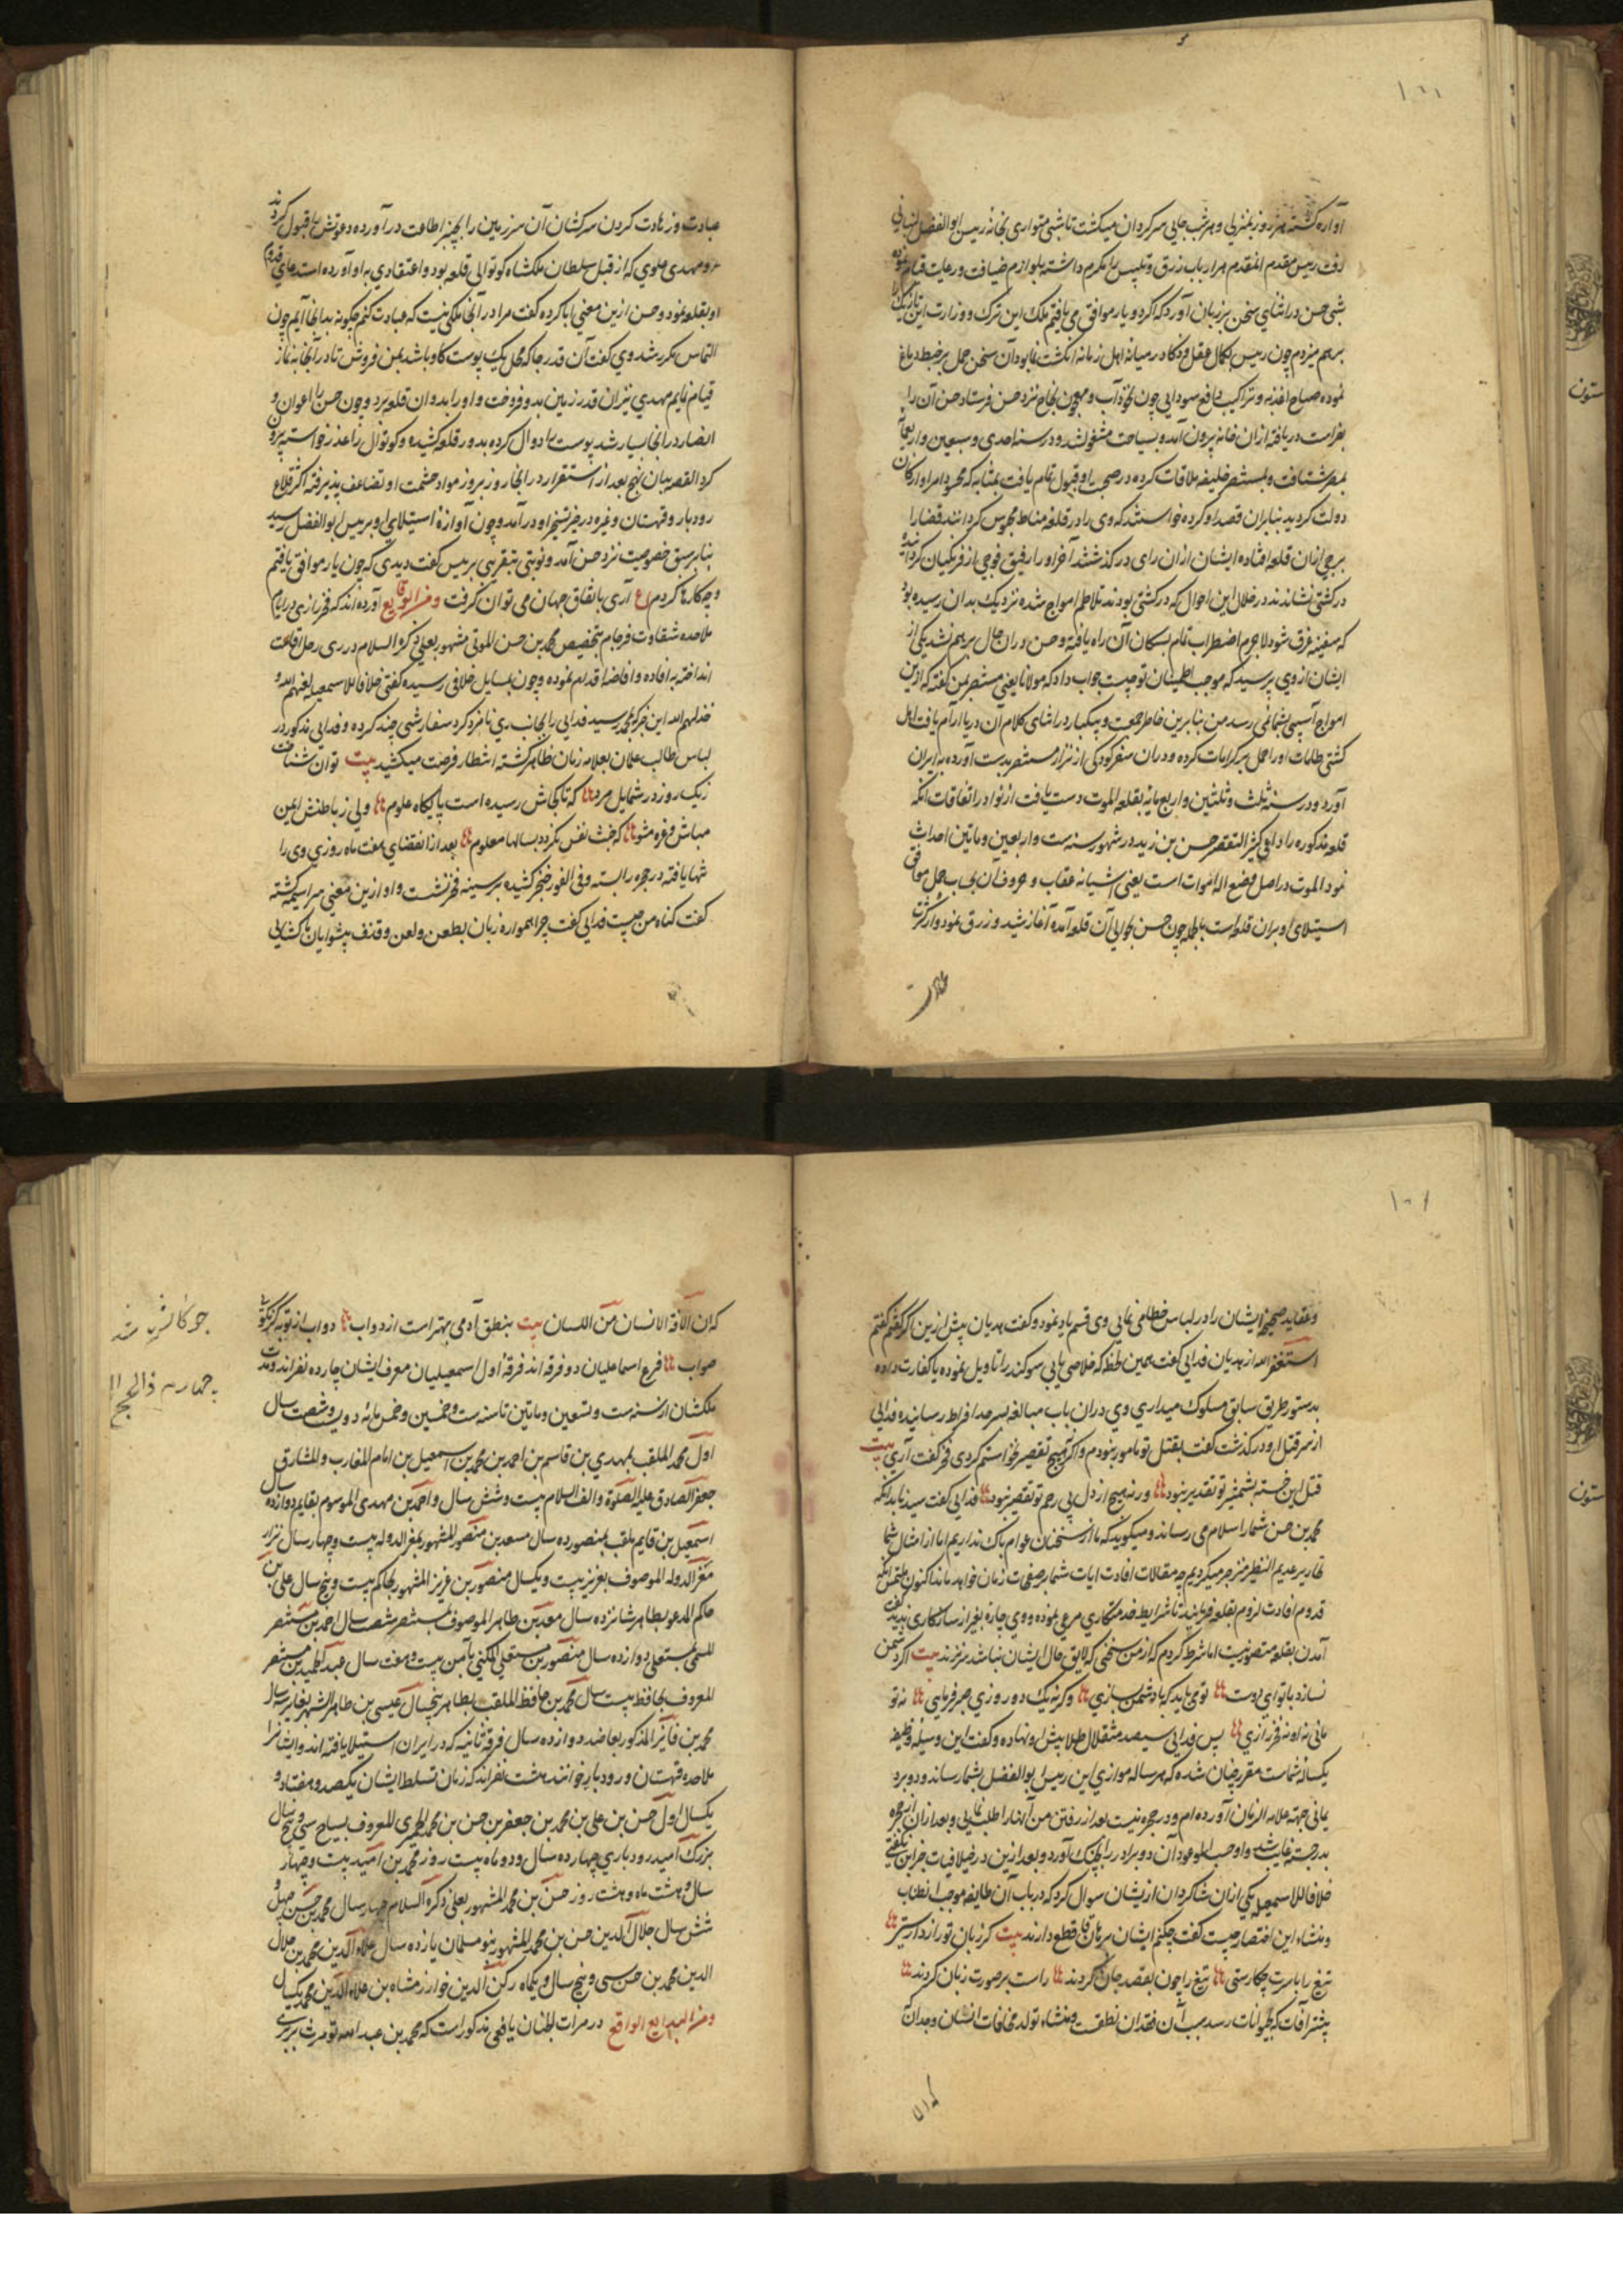 آواره گشته هر روز بمنزلی و هر شب بجایی سرگردان میگشت تا شبی متواری بخانه رییس ابوالفضل لنبانی
رفت رییس مقدم المقدم هزار باب زرق و تلبیس را مکرم داشته بلوازم ضیافت و رعایت قیام نموده
شبی حسن در اثنای سخن بر زبان آورد که اگر دو یار موافق می یافتم ملک این ترک و وزارت این تازیک را
برهم میزدم چون رییس بکمال عقل و ذکا در میانه اهل زمانه انگشت نما بود آن سخن حمل بر خبط دماغ
نموده صباح اغذیه و تراکیب دافع سودایی چون نخودآب و معجون نجاح نزد حسن فرستاد حسن آن را
بفراست دریافته از آن خانه بیرون آمد و بسیاحت مشغول شد و در سنه احدی و سبعین و اربعمایه
بمصر شتافت و بمستنصر خلیفه ملاقات کرده در صحبت او قبول تمام یافت بمثابه که محسود امرا و ارکان
دولت گردید بنابران قصد او کرده خواستند که وی را در قلعه مناط محبوس گردانند قضا را
برجی از آن قلعه افتاده ایشان از آن رای درگذشتند آخر او را رفیق فوجی از فرنگیان گردانیده
در کشتی نشاندند در خلال این احوال که در کشتی بودند تلاطم امواج شده نزدیک بدان رسیده بود
که سفینه غرق شود لاجرم اضطراب تمام بسکان آن راه یافته و حسن در آن حال برهم نشد یکی از
ایشان از وی پرسید که موجب اطمینان تو چیست جواب داد که مولانا یعنی مستنصر بمن گفته که ازین
امواج آسیبی بشما نمی رسد من بنابرین خاطر جمعم و بیکبار در اثنای کلام آن دریا آرام یافت اهل
کشتی طامات او را حمل بر کرامات کرده و در آن سفر کودکی از نزار مستنصر بدست آورده به ایران
آورد و در سنه ثلث و ثلثین و اربع مایه بقلعه الموت دست یافت از نوادر اتفاقات آنکه
قلعه مذکوره را داعی کبیر المتقصر حسن بن زید در شهور سنه ست و اربعین و ماتین احداث
نمود الموت در اصل وضع اله اموات است یعنی آشیانه عقاب و حروف آن بحساب جمل موافق
استیلای او بران قلعه است بالجمله چون حسن بحوالی آن قلعه آمده آغاز شید و زرق نمود و از کثرت
عبادت
عبادت و زهادت کردن سرکشان آن سرزمین را بچنبر اطاعت درآورده دعوتش را قبول کردند
و مهدی علوی که از قبل سلطان ملکشاه کوتوالی قلعه بود و اعتقادی به او آورده استدعای قدوم
او بقلعه نمود و حسن ازین معنی ابا کرده گفت مرا در آنجا ملکی نیست که عبادت کنم چگونه بدانجا آیم چون
التماس مکرر شد وی گفت آن قدر جا که محل یک پوست گاو باشد بمن فروش تا در آنجا به نماز
قیام نمایم مهدی نیز آن قدر زمین بدو فروخت و او را بدوان قلعه برد و چون حسن را اعوان و
انصار در آنجا بسیار شد پوست را دوال کرده بدور قلعه کشید و کوتوال را عذر خواسته بیرون
کرد القصه بیان نهج بعد از استقرار در آنجا روز بروز مواد حشمت او تضاعف پذیرفته اکثر قلاع
رودبار و قهستان و غیره در حیز تسخیر او درآمد و چون آوازه استیلای او به رییس ابوالفضل رسید
بنابر سبق خصوصیت نزد حسن آمد و نوبتی بتقریبی به رییس گفت دیدی که چون یار موافق یافتم
و چه کارها کردم ع آری باتفاق جهان می توان گرفت و من الوقایع آورده اند که فخر رازی در ایام
ملاحده شقاوت فرجام بتخصیص محمد بن حسن الموتی مشهور بعلی ذکره السلام در ری رحل اقامت
انداخته به افاده و افاضه اقدام نموده و چون بمسایل خلافی رسیده گفتی خلافا للاسمعیلیه لعنهم الله و
خذلهم الله این خبر که بمحمد رسید فدایی را بجانب ری نامزد کرد سفارشی چند کرده و فدایی مذکور در
لباس طالب علمان بعلامه زمان ظاهر گشته انتظار فرصت میکشید بیت توان شناخت
زیک روز در شمایل مرد که تا کجاش رسیده است پایگاه علوم ولی ز باطنش ایمن
مباش و غره مشو که خبث نفس نگردد بسالها معلوم بعد از انقضای هفت ماه روزی وی را
تنها یافته در حجره را بسته و فی الفور خنجر کشیده بر سینه فخر نشست و او ازین معنی سراسیمه گشته
گفت گناه من چیست فدایی گفت چرا همواره زبان بطعن و لعن و قذف پیشوایان ما کشایی
و عقاید صحیحه ایشان را در لباس خطا می نمایی وی قسم یاد نموده گفت هذیان پیش ازین اگر گفتم گفتم
استغفر الله از هذیان فدایی گفت همین لحظه که خلاصی یابی سوگند را تاویل نموده یا کفارت داده
بدستور طریق سابق مسلوک میداری وی در آن باب مبالغه بسرحد افراط رسانیده فدایی
از سر قتل او درگذشت گفت بقتل تو مامور نبودم و اگر نه هیچ تقصیر نخواستم کردی فخر گفت آری بیت
قتل این خسته بشمشیر تو تقدیر نبود ورنه هیچ از دل بی رحم تو تقصیر نبود فدایی گفت سیدنا بدانکه
محمد بن حسن شما را سلام می رساند و میگوید که ما از سخنان عوام باک نداریم اما از امثال شما
نحاریر عدیم النظیر متزجر میگردیم چه مقالات افادت ایات شما بر صفحات زمان خواهد ماند اکنون ملتمس آنکه
قدوم افادت لزوم بقلعه فرمایید تا شرایط خدمتکاری مرعی نموده و وی چاره بغیر از سازگاری ندید گفت
آمدن بقلعه متصور نیست اما شرط کردم که از من سخنی که لایق حال ایشان نباشد سر نزند بیت اگر دشمن
نسازد با تو ای دوست تو می باید که با دشمن بسازی وگرنه یک دو روزی صبر فرمایی نه تو
مانی نه او نه فخر رازی پس فدایی سیصد مثقال طلا پیش او نهاده و گفت این وسیله وظیفه
یکساله شماست مقرر چنان شده که هر ساله موازی این رییس ابوالفضل بشما رساند و دو برد
یمانی جهة علامه الزمان آورده ام و در حجره نیست بعد از رفتن من آنها را طلب نمایی و بعد از آن از حجره
بدر جسته غایب شد و او حسب الموعود آن دو برد را بچنگ آورد و بعد ازین در خلافیات جز این نگفتی
خلافا للاسمعیلیه یکی از آن شاگردان از ایشان سوال کرد که در باب آن طایفه موجب اطناب
و منشاء این اختصار چیست گفت چکنم ایشان برهان قاطع دارند بیت گر زبان تو رازدارستی
تیغ را با سرت چکارستی تیغ را چون بقصد جان کردند راست بر صورت زبان کردند
بیشتر آفات که بحیوانات رسد بسبب آن فقدان نطقست و منشاء تولد مخافات انسان وجدان
که ان
که ان الآفة الانسان من اللسان بیت بنطق آدمی بهتر است از دواب دواب از تو به گر نگویی
صواب فرع اسماعلیان دو فرقه اند فرقه اول اسمعیلیان مغرب ایشان چهارده نفراند و مدت
ملکشان از سنه ست و تسعین و ماتین تا سنه ست و خمسین و خمس مائه دویست و شصت سال
اول محمد الملقب بمهدی بن قاسم بن احمد بن محمد بن اسمعیل بن امام المغارب و المشارق
جعفر الصادق علیه الصلوة و الف السلام بیست و شش سال و احمد بن مهدی الموسوم بقایم دوازده سال
اسمعیل بن قایم ملقب بمنصور ده سال مسعد بن منصور المشهور بمعز الدوله بیست و چهار سال نزار
معز الدوله الموصوف بعزیز بیست و یکسال منصور بن عزیز المشهور بحاکم بیست و پنج سال علی بن
حاکم المدعو بطاهر شانزده سال معد بن طاهر الموصوف بمستنصر شصت سال احمد بن مستنصر
المسمی بمستعلی دوازده سال منصور بن مستعلی المکنی بآمن بیست و هفت سال عبد الحمید بن مستنصر
المعروف بحافظ بیست سال محمد بن حافظ الملقب بظاهر پنجسال عیسی بن ظاهر الشهیر بفایز سال
محمد بن فایز المذکور بعاضد دوازده سال فرقه ثانیه که در ایران استیلا یافته اند و ایشان را
ملاحده قهستان و رودبار خوانند هشت نفراند که زمان تسلط ایشان یکصد و هفتاد و
یکسال اول حسن بن علی بن محمد بن جعفر بن حسن بن محمد الحمیری المعروف بسیاح سی و پنج سال
بزرک امید رودباری چهارده سال و دو ماه بیست روز محمد بن امید بیست و چهار
سال و هشت ماه و هشت روز حسن بن محمد المشهور بعلی ذکره السلام چهار سال محمد بن حسن چهل و
شش سال جلال الدین حسن بن محمد المشهور بنو مسلمان یازده سال علاء الدین محمد بن جلال
الدین محمد بن حسن سی و پنج سال و یکماه رکن الدین خوارزمشاه بن علاء الدین محمد یکسال
و من البدایع الوقایع در مرات الجنان یافعی مذکور است که محمد بن عبد الله تومرث بربری